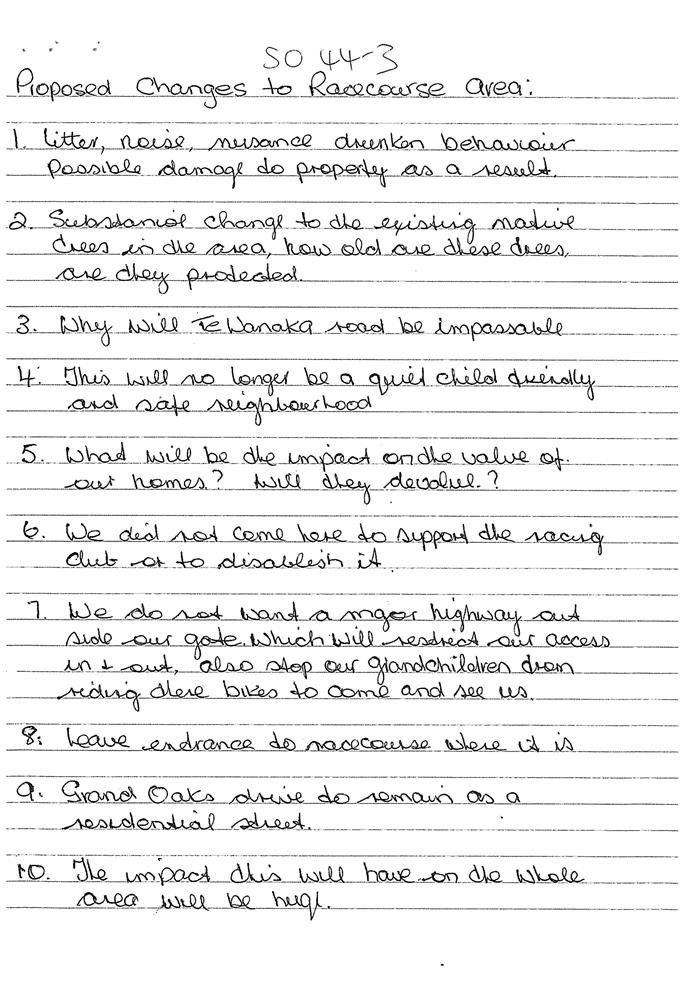 SO 44-3
Proposed Changes to Racecourse area:
1. litter, noise, nusance drunken behaviour
possible damage to property as a result.
2. Substancial change to the existing native
trees in the area, how old are these trees,
are they protected.
3. Why will Te Wanaka road be impassable
4. This will no longer be a quiet child friendly
and safe neighbourhood
5. What will be the impact on the value of
our homes? Will they devalue?
6. We did not come here to support the racing
Club or to disablish it.
7. We do not want a major highway out
side our gate. Which will restrict our access
in & out, also stop our grandchildren from
riding there bikes to come and see us.
8. Leave entrance to racecourse where it is
9. Grand Oaks drive to remain as a
residential street.
10. The impact this will have on the whole
area will be huge.